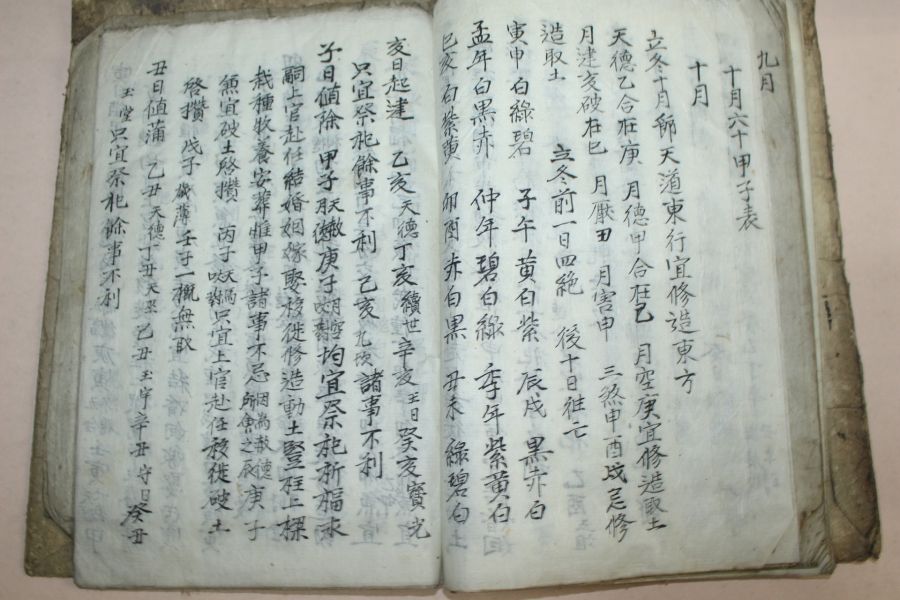 九月
十月六十甲子表
十月
立冬十月節天道東行宜修造東方
天德乙合在庚 月德甲合在己 月空庚宜修造取土
月建亥破在巳 月厭丑 月害申 三煞申酉戌忌修
造取土 立冬前一日四絶 後十日往亡
寅申白綠碧 子午黃白紫 辰戌 黑赤白
孟年白黑赤 仲年碧白綠 季年紫黃白
巳亥白紫黃 卯酉赤白黑 丑未 綠碧白
亥日起建 乙亥天德丁亥續世辛亥王日癸亥寶光
只宜祭祀餘事不利 己亥九坎諸事不利
子日值除 甲子天赦月德庚子均宜祭祀祈福求
嗣上官赴任結婚姻嫁娶移徙修造動土豎柱上樑
栽種牧養安葬惟甲子諸事不忌因為赦德所會之辰庚子
兼宜破土啓攢 丙子只宜上官赴任移徙破土
啓攢 戊子 壬子一概無取
丑日值滿 乙丑天德丁丑天巫己丑玉宇辛丑守日癸丑
玉堂只宜祭祀餘事不利